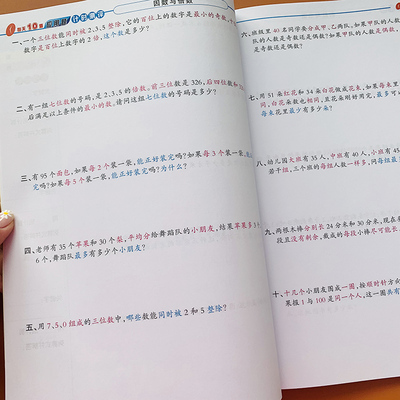 每天10道应用题 计时测评
一、一个三位数能同时被2、3、5整除,它的百位上的数字是最小的奇数,个
数字是百位上数字的2倍,这个数是多少?
二、有一组七位数的号码,是2、3、5的倍数。前三位数是326,后四位数和
后满足以上条件的最小的数。请问这组七位数的号码是多少?
三、有95个面包,如果每2个装一袋,能正好装完吗?如果每3个装一袋,能
完吗?如果每5个装一袋,能正好装完吗?为什么?
四、老师有35个苹果和30个梨,平均分给舞蹈队的小朋友,结果苹果多3
6个,舞蹈队最多有多少个小朋友?
五、用7、5、0组成的三位数中,哪些数能同时被2和5整除?
因数与倍数
六、班级里40名同学要分成甲、乙两队。如果甲队的人数
队的人数是奇数还是偶数?如果甲队的人数是偶数,
是奇数还是偶数?
七、用51朵红花和34朵白花做成花束,如果每束里
同,白花朵数也相同,且花朵刚好用完,最多可
每束花里最少有多少朵?
八、幼儿园大班有35人,中班有40人,小班有45
若干组,三个班的每组人数一样多,问每组最
九、两根木棒分别长24分米和30分米,现在
段且没有剩余,截成的每段小棒尽可能长
十、十几个小朋友围成一圈,按顺时针方向
果报1与100是同一个人,这一圈共有